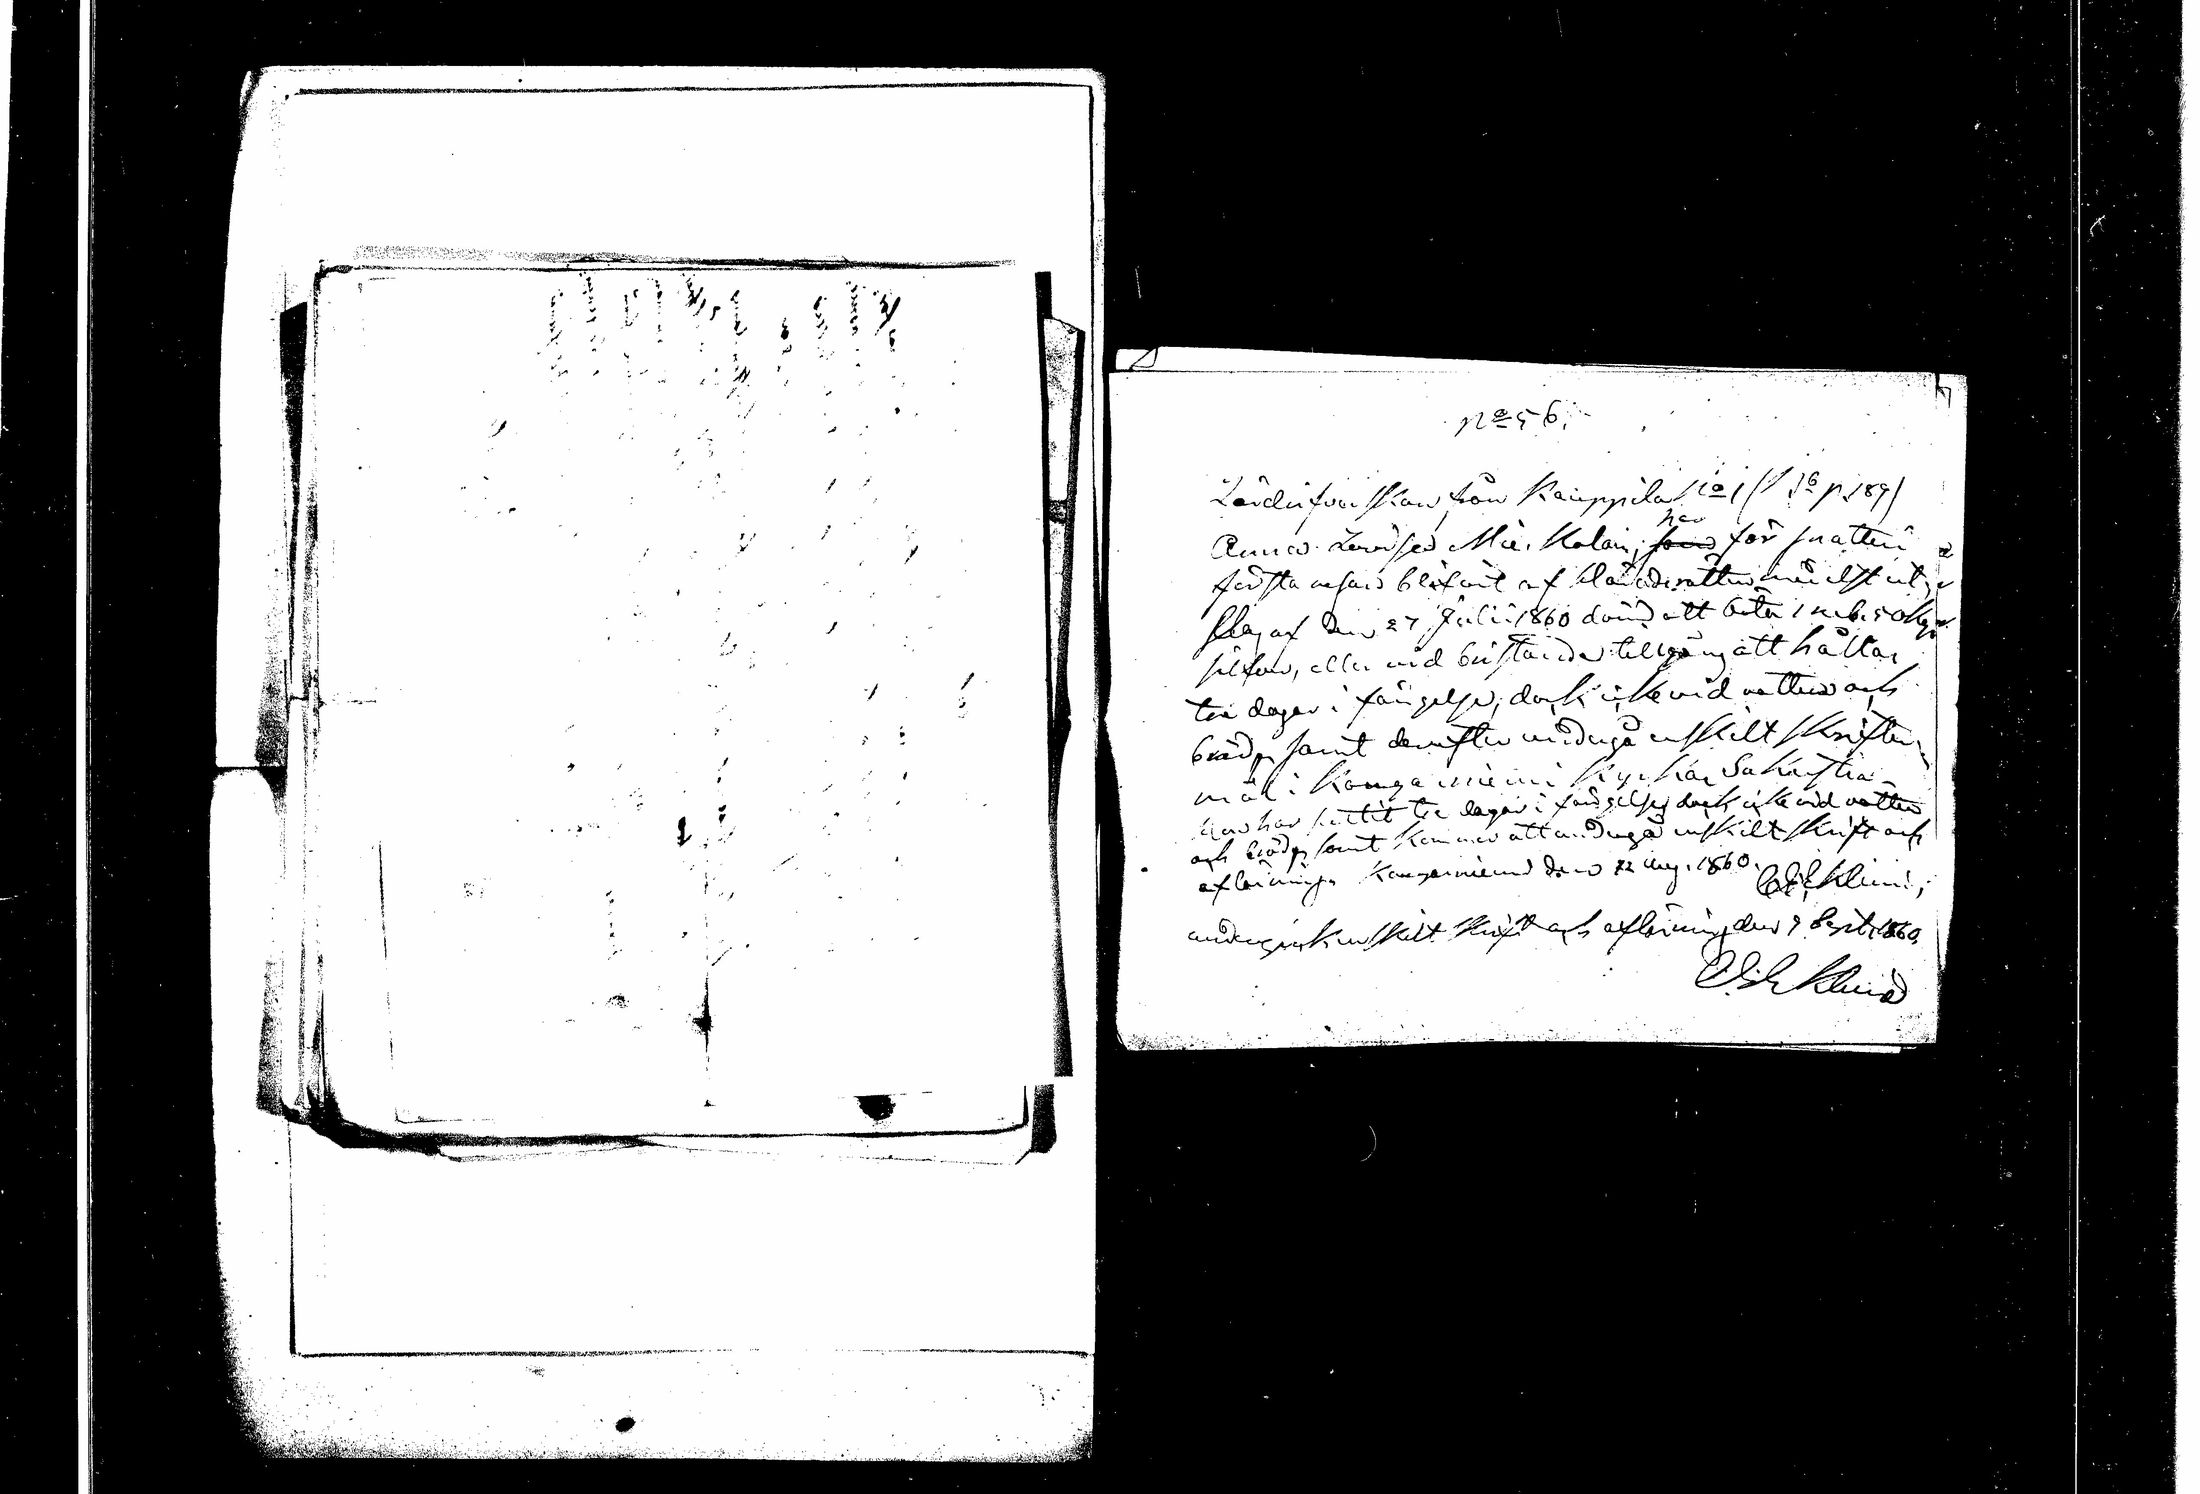 No 56.
från Kauppila No 1 (S. 16 p. 189)
Anna Mic. Kolari, har för snatteri
första resan blifvit af Häradsrätten medelst ut-
slag af den 27 Julii 1860 dömd att böta 1 rub. 50 kop.
silfver, eller vid bristande tillgång att hållas
tre dagar i fängelse, dock icke vid vatten och
bröd, samt derefter undergå enskilt skrifter-
mål i Kangasniemi Kyrkas Sakristia.
Hon har suttit tre dagar i fängelse, dock icke vid vatten
och bröd, samt kommer att undergå enskilt skrift och
aflösning. Kangasniemi den 22 Aug. 1860.
undergick enskilt skrift och aflösning den 9 Sept. 1860.